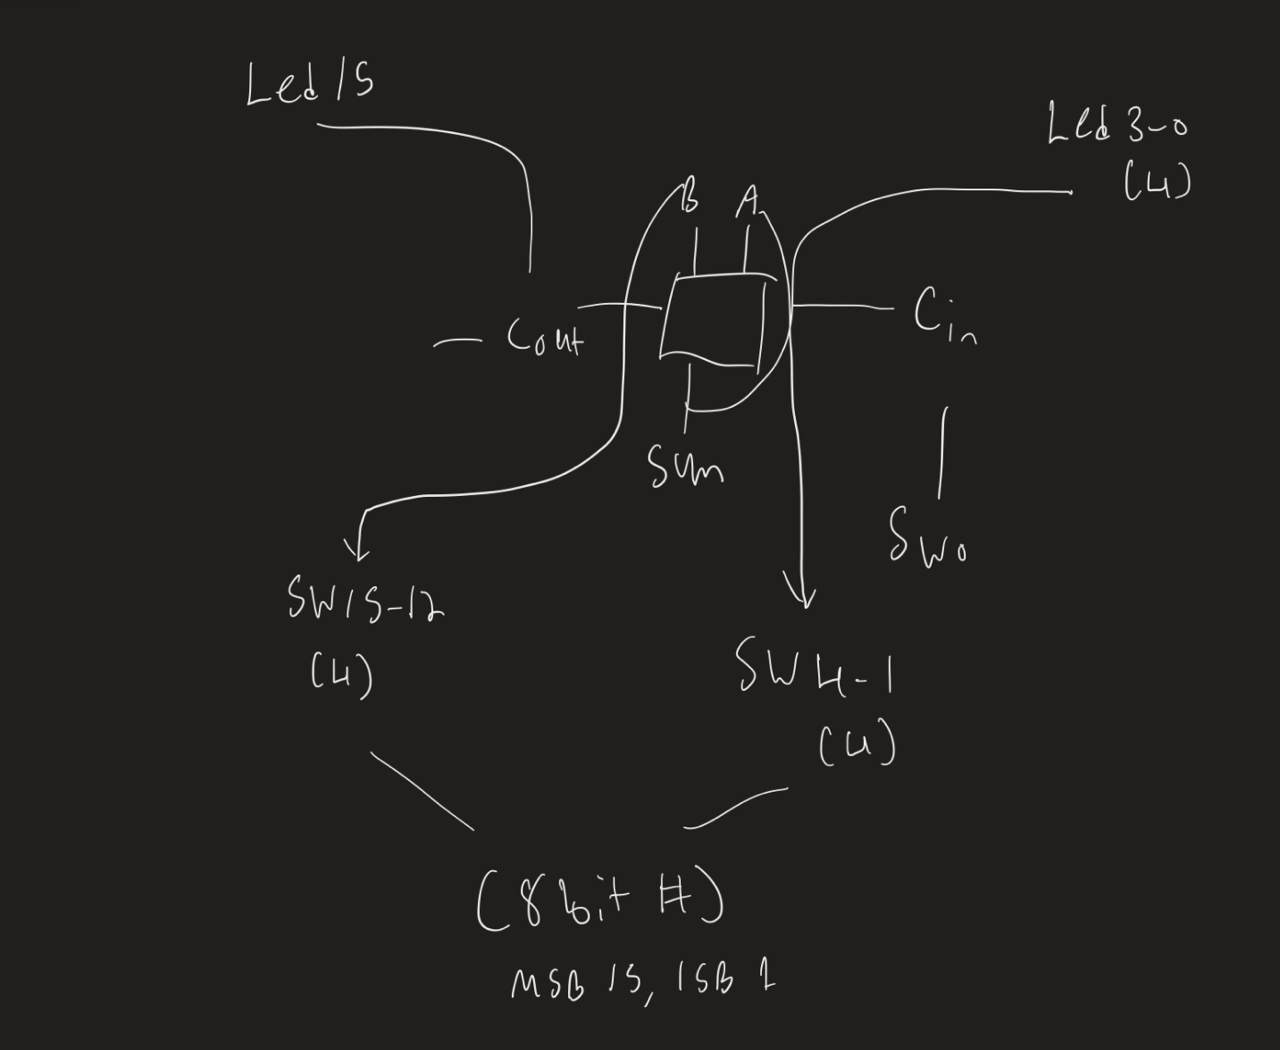 Led 15
Led 3-0
(4)
B A
Cin
Cout
Sum
SW0
SW15-12
(4)
SW 4-1
(4)
(8 bit #)
MSB 15, LSB 1